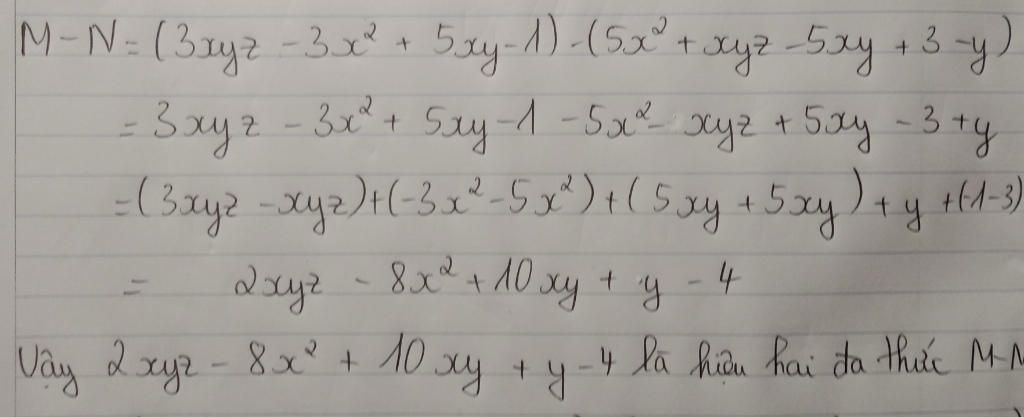 M-N = (3xyz - 3x² + 5xy - 1) - (5x² + xyz - 5xy + 3 - y)
= 3xyz - 3x² + 5xy - 1 - 5x² - xyz + 5xy - 3 + y
= (3xyz - xyz) + (-3x² - 5x²) + (5xy + 5xy) + y + (-1-3)
= 2xyz - 8x² + 10xy + y - 4
Vậy 2xyz - 8x² + 10xy + y - 4 là hiệu hai đa thức M-N